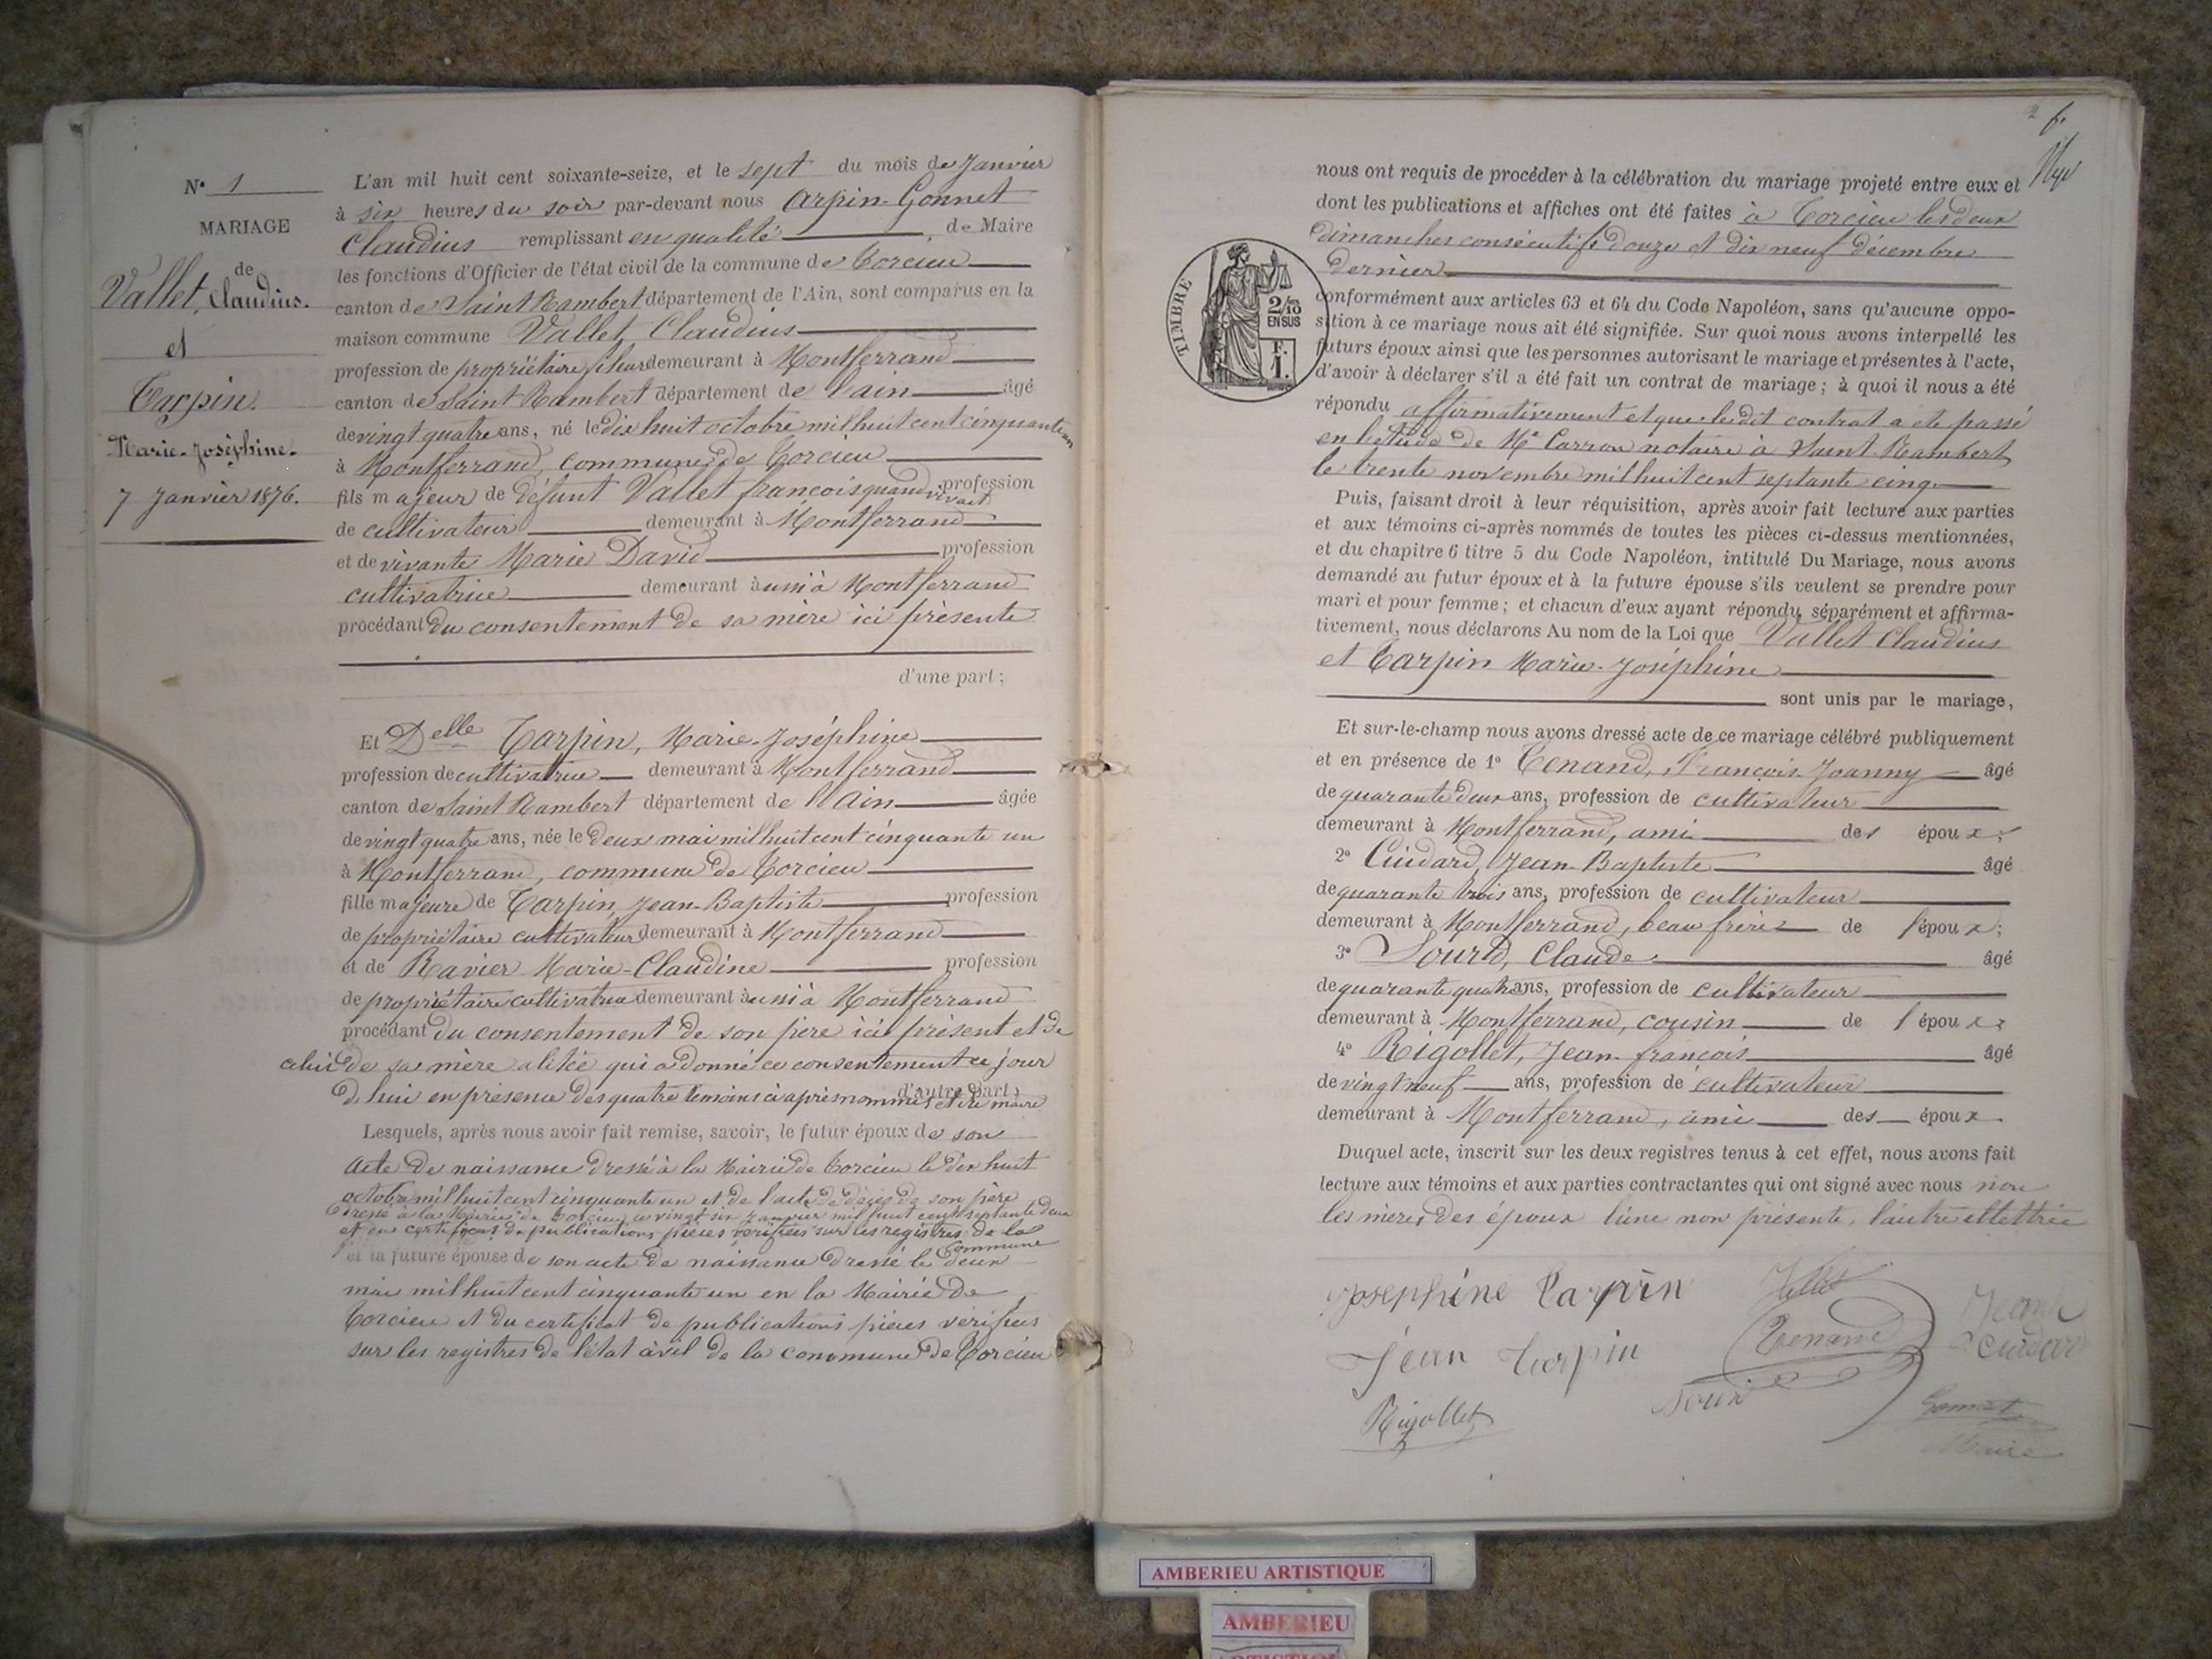 N° 1
MARIAGE
de
Vallet, Claudius.
et
Tarpin
Marie-Joséphine.
7 Janvier 1876.
L'an mil huit cent soixante-seize, et le sept du mois de Janvier
à six heures du soir par-devant nous Arpin-Gonnet
Claudius remplissant en qualité, de Maire
les fonctions d'Officier de l'état civil de la commune de Torcieu
canton de Saint Rambert département de l'Ain, sont comparus en la
maison commune Vallet Claudius
profession de propriètaire fileur demeurant à Montferrand
canton de Saint Rambert département de l'ain âgé
de vingt quatre ans, né le dix huit octobre mil huit cent cinquante un
à Montferrand, commune de Torcieu
fils majeur de défunt Vallet françois quand vivait profession
de cultivateur demeurant à Montferrand
et de vivante Marie David profession
cultivatrice demeurant aussi à Montferrand
procédant du consentement de sa mère ici présente
d'une part;
Et Delle Tarpin, Marie-Joséphine
profession de cultivatrice demeurant à Montferrand
canton de Saint Rambert département de l'Ain âgée
de vingt quatre ans, née le deux mai mil huit cent cinquante un
à Montferrand, commune de Torcieu
fille majeure de Tarpin, Jean-Baptiste profession
de propriétaire cultivateur demeurant à Montferrand
et de Ravier Marie-Claudine profession
de propriétaire cultivatrice demeurant aussi à Montferrand
procédant du consentement de son père ici présent et de
celui de sa mère alitée qui a donné ce consentement ce jour
d'hui en présence des quatre témoins ci après nommés et du maire
d'autre part;
Lesquels, après nous avoir fait remise, savoir, le futur époux de son
acte de naissance dressé à la Mairie de Torcieu le dix huit
octobre mil huit cent cinquante un et de l'acte de décès de son père
dressé à la Mairie de Torcieu le vingt six Janvier mil huit cent septante deux
et du certificat de publications pièces vérifiées sur les registres de la
commune
et la future épouse de son acte de naissance dressé le deux
mai mil huit cent cinquante un en la Mairie de
Torcieu et du certificat de publications pièces vérifiées
sur les registres de l'état civil de la commune de Torcieu
6.
nous ont requis de procéder à la célébration du mariage projeté entre eux et
dont les publications et affiches ont été faites à Torcieu les deux
dimanches consécutifs douze et dix neuf décembre
dernier
TIMBRE
2/10
EN SUS
F.
1.
conformément aux articles 63 et 64 du Code Napoléon, sans qu'aucune oppo-
sition à ce mariage nous ait été signifiée. Sur quoi nous avons interpellé les
futurs époux ainsi que les personnes autorisant le mariage et présentes à l'acte,
d'avoir à déclarer s'il a été fait un contrat de mariage; à quoi il nous a été
répondu affirmativement et que ledit contrat a été passé
en l'étude de Me Carron notaire à Saint Rambert
le trente novembre mil huit cent septante cinq.
Puis, faisant droit à leur réquisition, après avoir fait lecture aux parties
et aux témoins ci-après nommés de toutes les pièces ci-dessus mentionnées,
et du chapitre 6 titre 5 du Code Napoléon, intitulé Du Mariage, nous avons
demandé au futur époux et à la future épouse s'ils veulent se prendre pour
mari et pour femme; et chacun d'eux ayant répondu séparément et affirma-
tivement, nous déclarons Au nom de la Loi que Vallet Claudius
et Tarpin Marie-Joséphine
sont unis par le mariage,
Et sur-le-champ nous avons dressé acte de ce mariage célébré publiquement
et en présence de 1° Tenand, François-Joanny âgé
de quarante deux ans, profession de cultivateur
demeurant à Montferrand, ami des époux;
2° Cuidard, Jean-Baptiste âgé
de quarante trois ans, profession de cultivateur
demeurant à Montferrand, beau frère de l'époux;
3° Sourd, Claude âgé
de quarante quatre ans, profession de cultivateur
demeurant à Montferrand, cousin de l'époux;
4° Rigollet, Jean-françois âgé
de vingt neuf ans, profession de cultivateur
demeurant à Montferrand, ami des époux
Duquel acte, inscrit sur les deux registres tenus à cet effet, nous avons fait
lecture aux témoins et aux parties contractantes qui ont signé avec nous non
les mères des époux l'une non présente, l'autre illettrée
Josephine Tarpin
Vallet
Jean
Cuidard
Jean Tarpin
Tenand
Rigollet
Sourd
Gonnet
Maire
AMBERIEU ARTISTIQUE
AMBERIEU
ARTISTIQUE